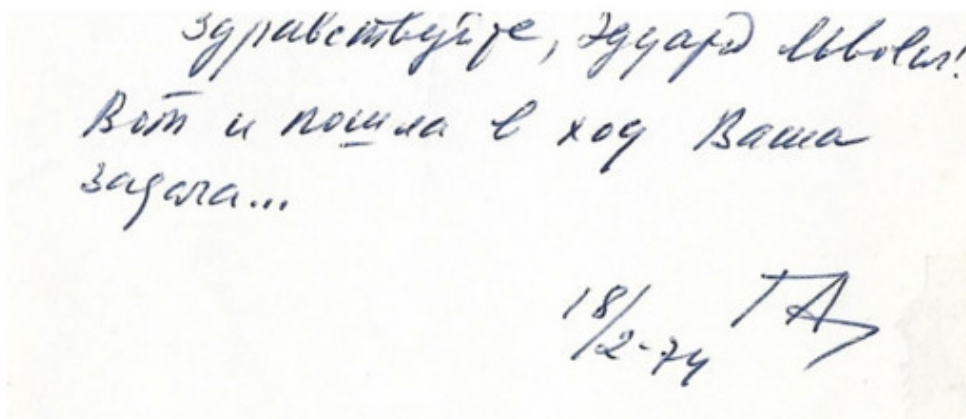 Здравствуйте, Эдуард Львович!
Вот и пошла в ход Ваша
задача...
18/2-74 ГА